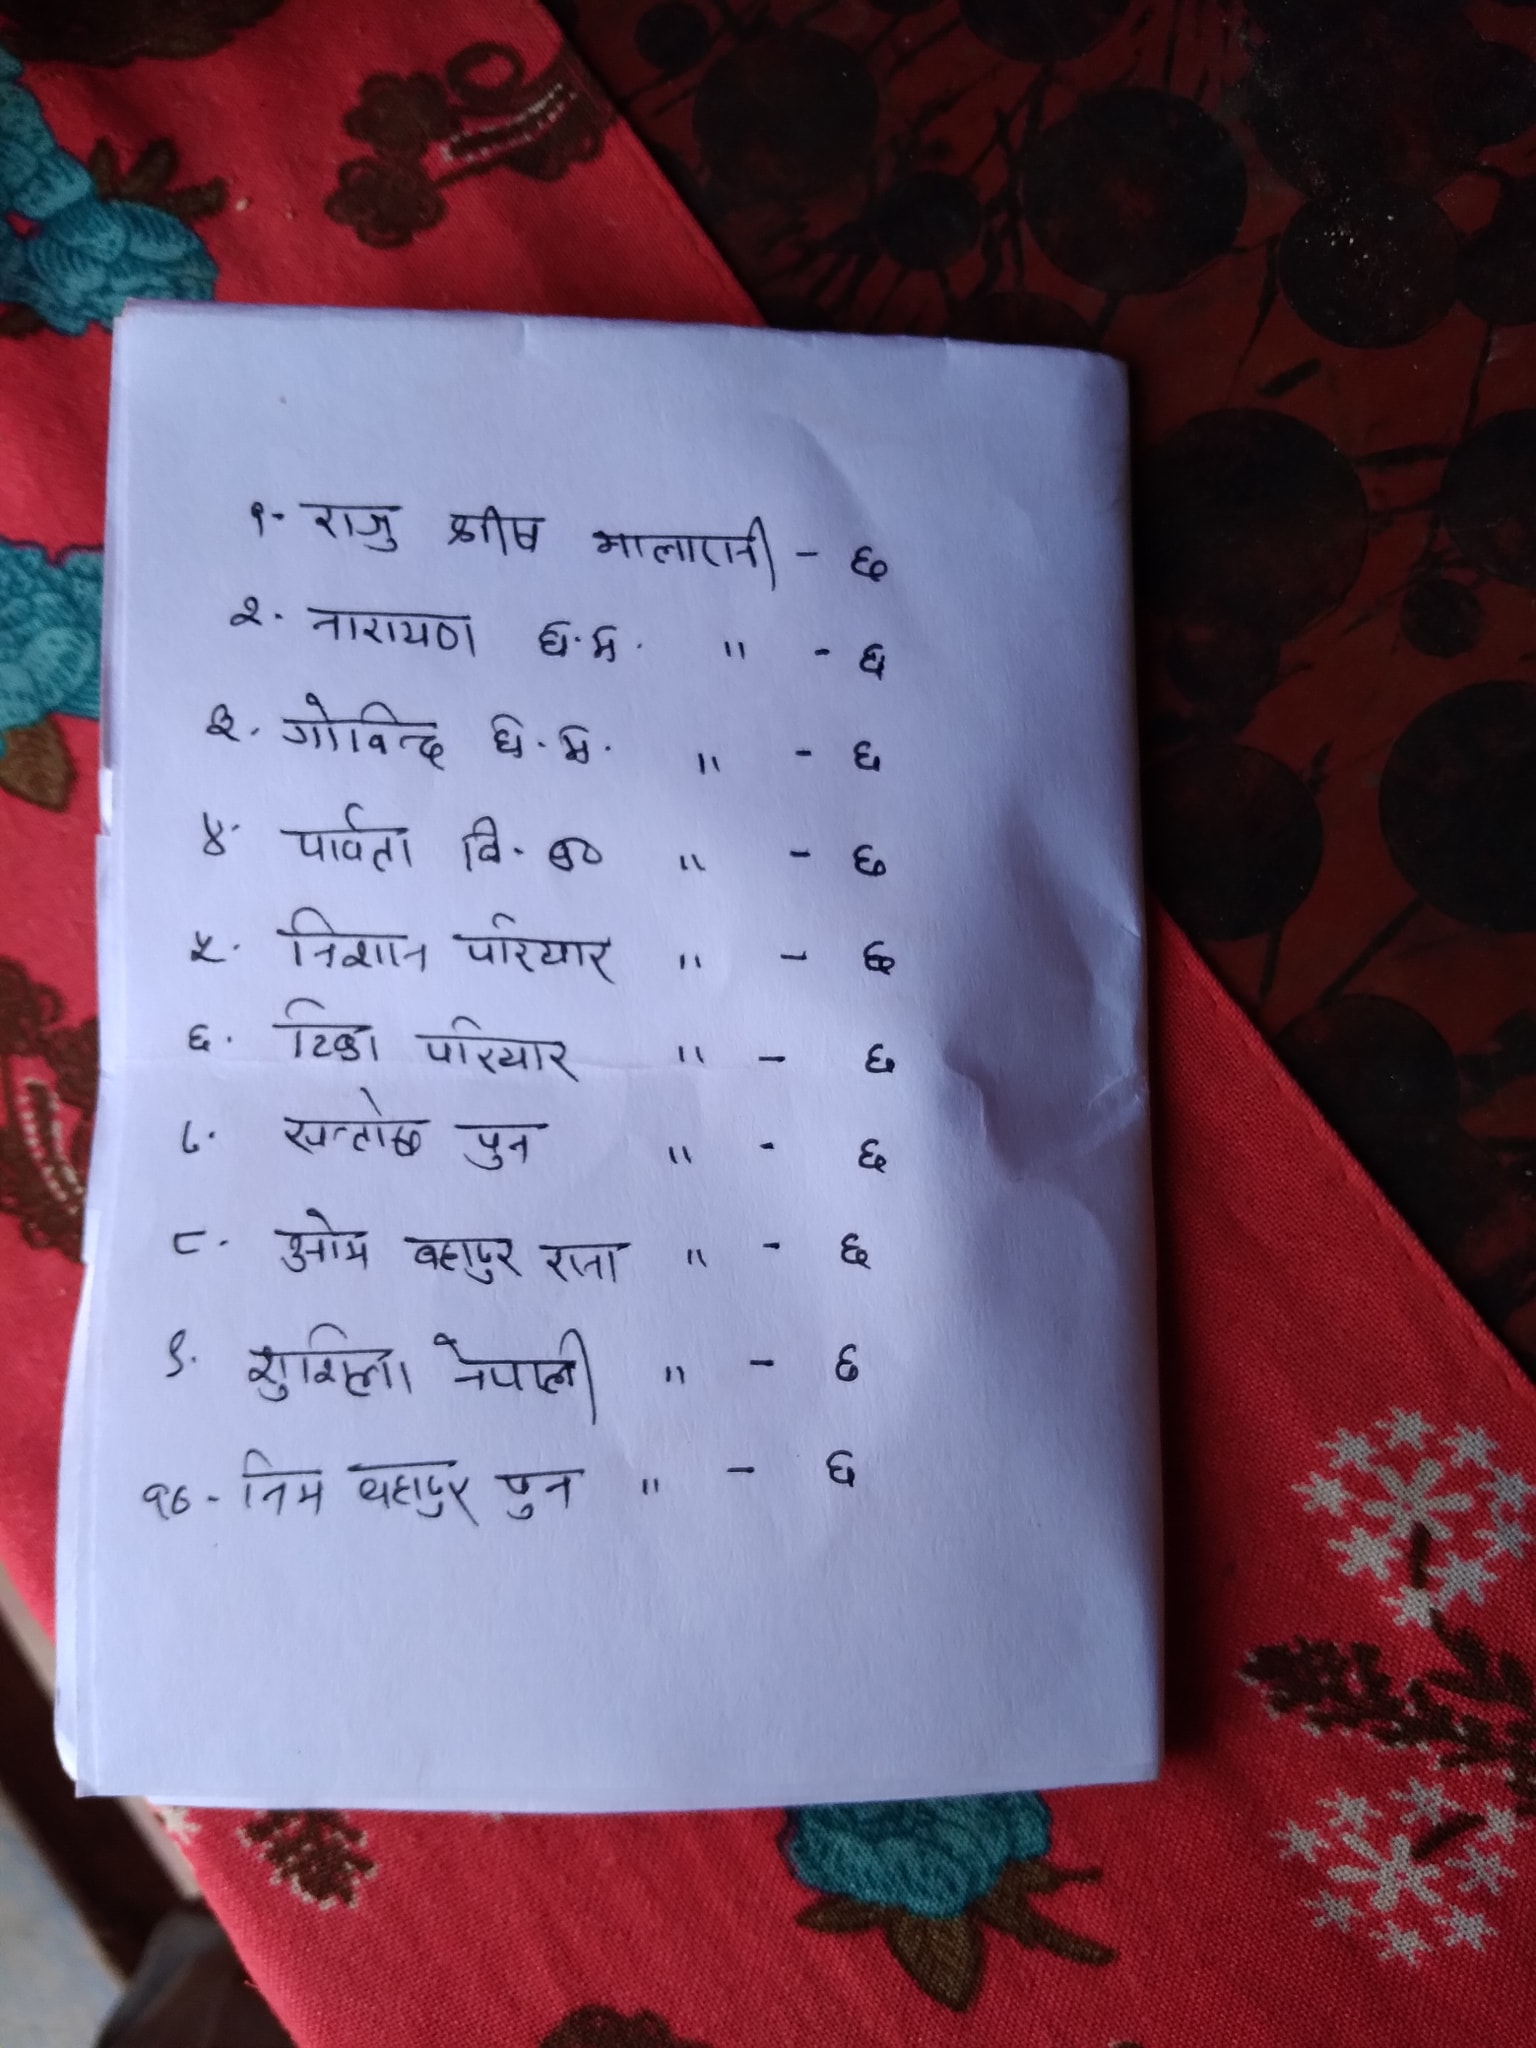 १- राजु श्रीष मालारानी - ६
२. नारायण घ.म. " - ६
३. गोविन्द घ.म. " - ६
४. पार्वता वि. क० " - ६
५. निशान परियार " - ६
६. टिका परियार " - ६
७. सन्तोष पुन " - ६
८. ओम बहादुर राना " - ६
९. शुशिला नेपाली " - ६
१०- निम बहादुर पुन " - ६